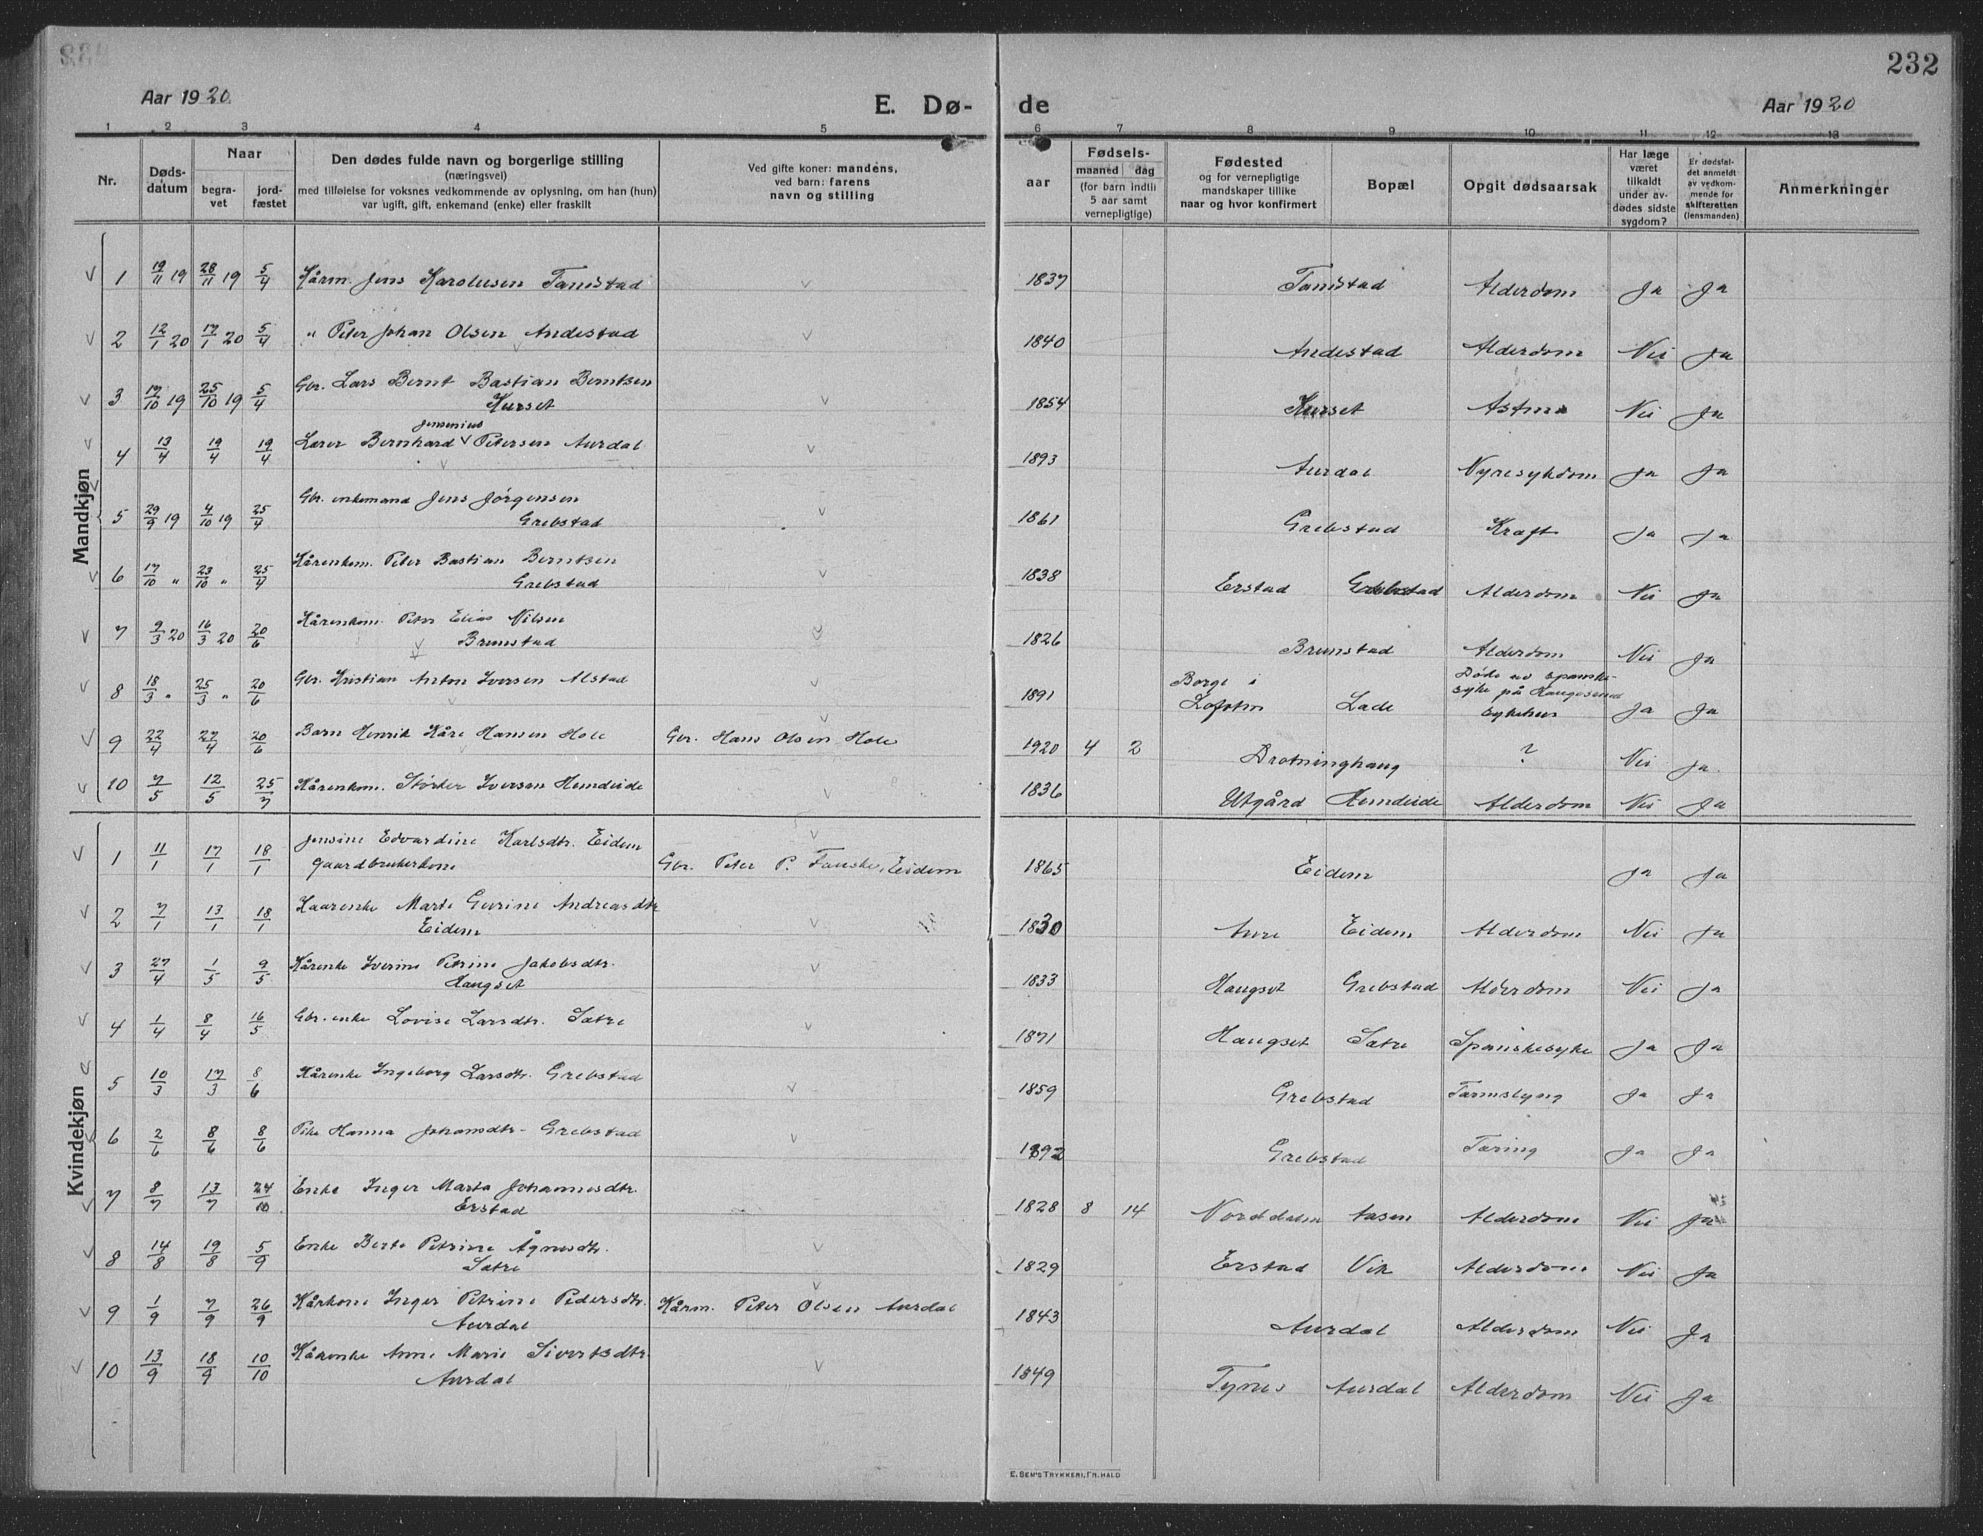 232
Aar 1920
E. Dø- de
Aar 1920
1 2 3 4 5 6 7 8 9 10 11 12 13
Nr.
Døds-
datum
Naar
begra-
vet
jord-
fæstet
Den dødes fulde navn og borgerlige stilling
(næringsvei)
med tilføielse for voksnes vedkommende av oplysning, om han (hun)
var ugift, gift, enkemand (enke) eller fraskilt
Ved gifte koner: mandens,
ved barn: farens
navn og stilling
Fødsels-
aar
maaned dag
(for barn indtil
5 aar samt
vernepligtige)
Fødested
og for vernepligtige
mandskaper tillike
naar og hvor konfirmert
Bopæl
Opgit dødsaarsak
Har læge
været
tilkaldt
under av-
dødes sidste
sygdom?
Er dødsfal-
det anmeldt
av vedkom-
mende for
skifteretten
(lensmanden)
Anmerkninger
Mandkjøn
1 19/11 19 28/11 19 5/4 Kårm. Jens Karolusen Tandstad 1837 Tandstad Alderdom Ja Ja
2 12/1 20 17/1 20 5/4 " Peter Johan Olsen Andestad 1840 Andestad Alderdom Nei Ja
3 17/10 19 25/10 19 5/4 Gbr. Lars Bernt Bastian Berntsen
Hurset 1854 Hurset Astma Nei Ja
Jensenius
4 13/4 19/4 19/4 Lærer Bernhard Petersen Aurdal 1893 Aurdal Nyresykdom Ja Ja
5 29/9 19 4/10 19 25/4 Gbr. enkemand Jens Jørgensen
Grebstad 1861 Grebstad Kræft Ja Ja
6 17/10 " 23/10 " 25/4 Kårenkem. Peter Bastian Berntsen
Grebstad 1838 Erstad Grebstad Alderdom Nei Ja
7 9/3 20 16/3 20 20/6 Kårenkem. Peter Elias Nilsen
Brunstad 1826 Brunstad Alderdom Nei Ja
8 18/3 " 25/3 " 20/6 Gbr. Kristian Anton Iversen Alstad 1891 Borge i
Lofoten Lade Døde av spanske-
syke på Haugesund
sykehus Ja Ja
9 22/4 27/4 20/6 Barn Henrik Kåre Hansen Hole Gbr. Hans Olsen Hole 1920 4 2 Drotninghaug ? Nei Ja
10 7/5 12/5 25/7 Kårenkem. Størker Iversen Hundeide 1836 Utgård Hundeide Alderdom Nei Ja
Kvindekjøn
1 11/1 17/1 18/1 Jensine Edvardine Karlsdtr. Eidem
gaardbrukerkone Gbr. Peter P. Fauske, Eidem 1865 Eidem Ja Ja
2 7/1 13/1 18/1 Kaarenke Marte Gurine Andreasdtr
Eidem 1830 Aure Eidem Alderdom Nei Ja
3 27/4 1/5 9/5 Kårenke Iverine Petrine Jakobsdtr.
Haugset 1833 Haugset Grebstad Alderdom Nei Ja
4 1/4 8/4 16/5 Gbr. enke Lovise Larsdtr. Sætre 1871 Haugset Sætre Spanskesyke Ja Ja
5 10/3 17/3 8/6 Kårenke Ingeborg Larsdtr. Grebstad 1859 Grebstad Tarmslyng Ja Ja
6 2/6 8/6 8/6 Pike Hanna Johansdtr. Grebstad 1892 Grebstad Tæring Ja Ja
7 8/7 13/7 24/10 Enke Inger Marta Johannesdtr.
Erstad 1828 8 14 Norddalen Aasen Alderdom Nei Ja
8 14/8 19/8 5/9 Enke Berte Petrine Ågnesdtr.
Sætre 1829 Erstad Vik Alderdom Nei Ja
9 1/9 7/9 26/9 Kårkone Inger Petrine Pedersdtr.
Aurdal Kårm. Peter Olsen Aurdal 1843 Aurdal Alderdom Nei Ja
10 13/9 18/9 10/10 Kårenke Anne Marie Sivertsdtr.
Aurdal 1849 Tynes Aurdal Alderdom Nei Ja
E. SEM'S TRYKKERI, FR. HALD